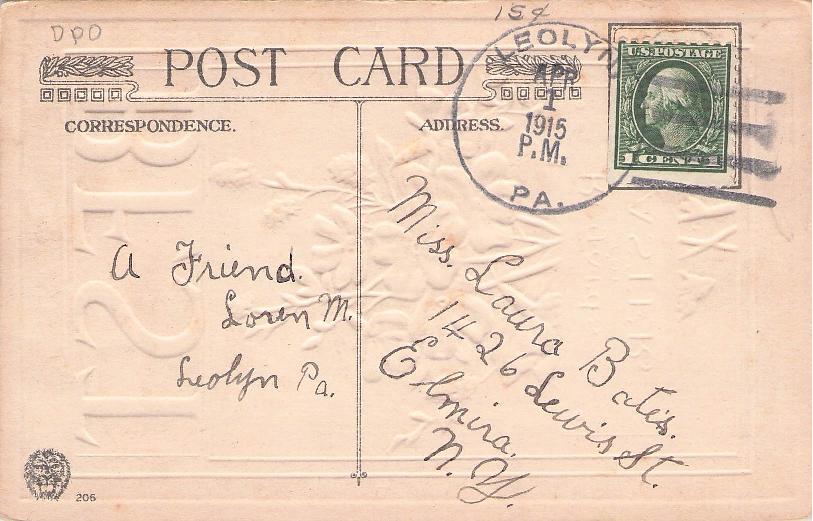 DPO
15¢
POST CARD
CORRESPONDENCE.
ADDRESS.
LEOLYN
APR
1
1915
P.M.
PA.
U.S. POSTAGE
1 CENT 1
A Friend.
Loren M.
Leolyn Pa.
Miss. Laura Bates.
1426 Lewis St.
Elmira.
N.Y.
206